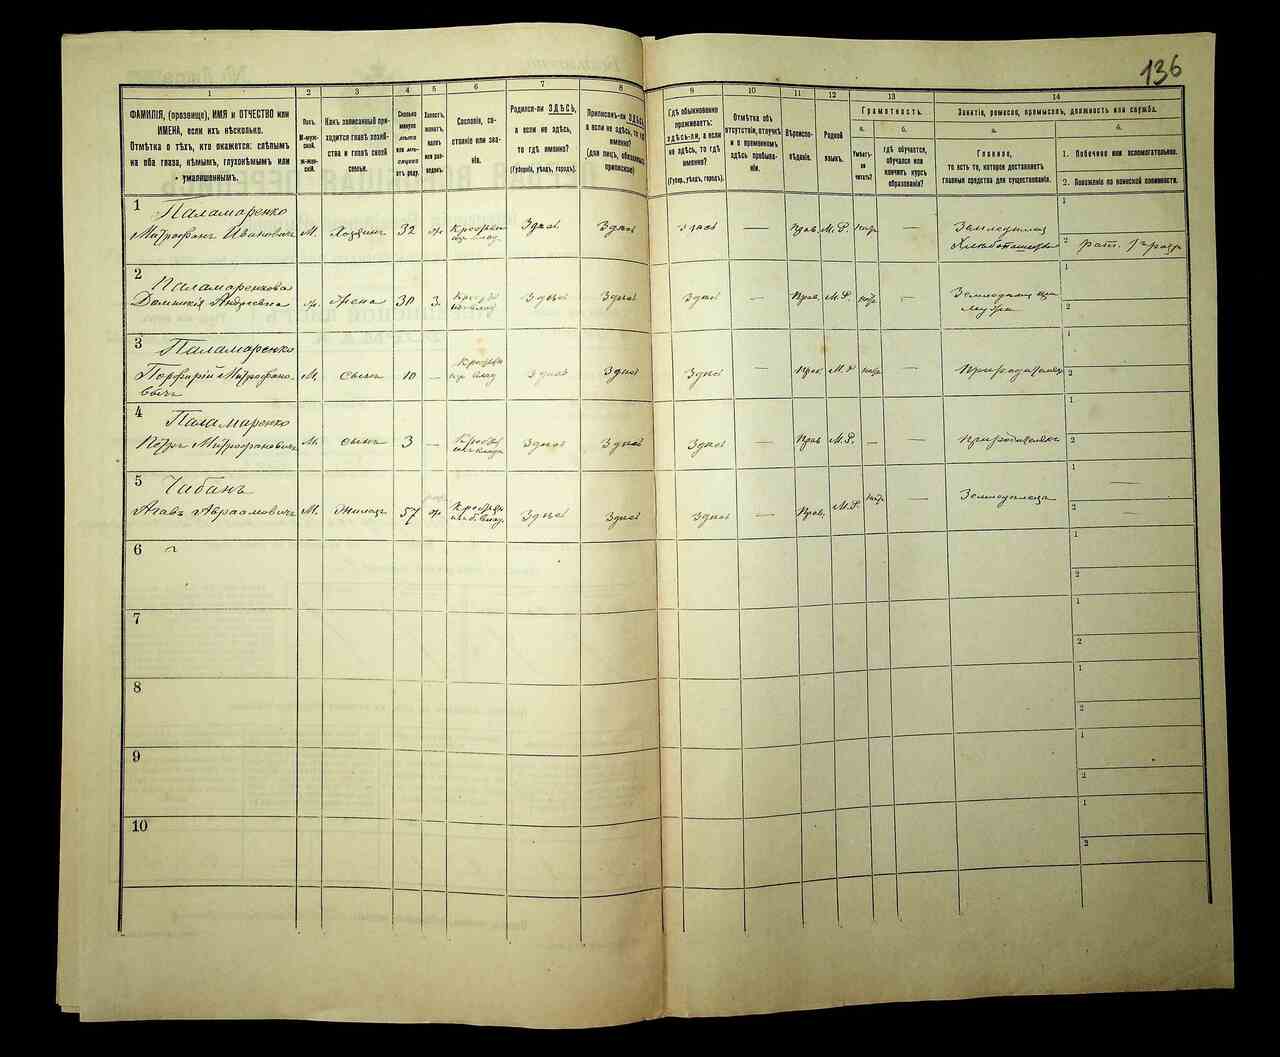 136
1
ФАМИЛІЯ, (прозвище), ИМЯ и ОТЧЕСТВО или
ИМЕНА, если ихъ нѣсколько.
Отмѣтка о тѣхъ, кто окажется: слѣпымъ
на оба глаза, нѣмымъ, глухонѣмымъ или
умалишеннымъ.
2
Полъ.
М-муж-
ской.
ж-жен-
скій.
3
Какъ записанный при-
ходится главѣ хозяй-
ства и главѣ своей
семьи.
4
Сколько
минуло
лѣтъ
или мѣ-
сяцевъ
отъ роду.
5
Холостъ,
женатъ,
вдовъ
или раз-
веденъ.
6
Сословіе, со-
стояніе или зва-
ніе.
7
Родился-ли ЗДѢСЬ,
а если не здѣсь,
то гдѣ именно?
(Губернія, уѣздъ, городъ).
8
Приписанъ-ли ЗДѢСЬ,
а если не здѣсь, то гдѣ
именно?
(для лицъ, обязанныхъ
припискою)
9
Гдѣ обыкновенно
проживаетъ:
здѣсь-ли, а если
не здѣсь, то гдѣ
именно?
(Губер., уѣздъ, городъ).
10
Отмѣтка объ
отсутствіи, отлучкѣ
и о временномъ
здѣсь пребыва-
ніи.
11
Вѣроиспо-
вѣданіе.
12
Родной
языкъ.
13
Грамотность.
а.
Умѣетъ-
ли
читать?
б.
гдѣ обучается,
обучался или
кончилъ курсъ
образованія?
14
Занятіе, ремесло, промыселъ, должность или служба.
а.
Главное,
то есть то, которое доставляетъ
главныя средства для существованія.
б.
1. Побочное или вспомогательное.
2. Положеніе по воинской повинности.
1
Паламаренко
Митрофанъ Ивановичъ М. Хозяинъ 32 ж. Здѣсь Здѣсь Здѣсь — Прав. М.Р. — Земледѣлецъ
1
2
2
Паламаренкова
Домникія Андреевна ж. жена 30 З. Здѣсь Здѣсь Здѣсь — Прав. М.Р. —
1
2
3
Паламаренко
Порфирій Митрофано- М. сынъ 10 — Здѣсь Здѣсь Здѣсь — Прав. М.Р. —
вичъ
1
2
4
Паламаренко
Петръ Митрофановичъ М. сынъ 3 — Здѣсь Здѣсь Здѣсь — Прав. М.Р. — —
1
2
5
Чабанъ
Авраамовичъ М. Жилецъ 57 ж. Здѣсь Здѣсь Здѣсь — Прав. М.Р. — Земледѣлецъ
1 —
2 —
6
1
2
7
1
2
8
1
2
9
1
2
10
1
2